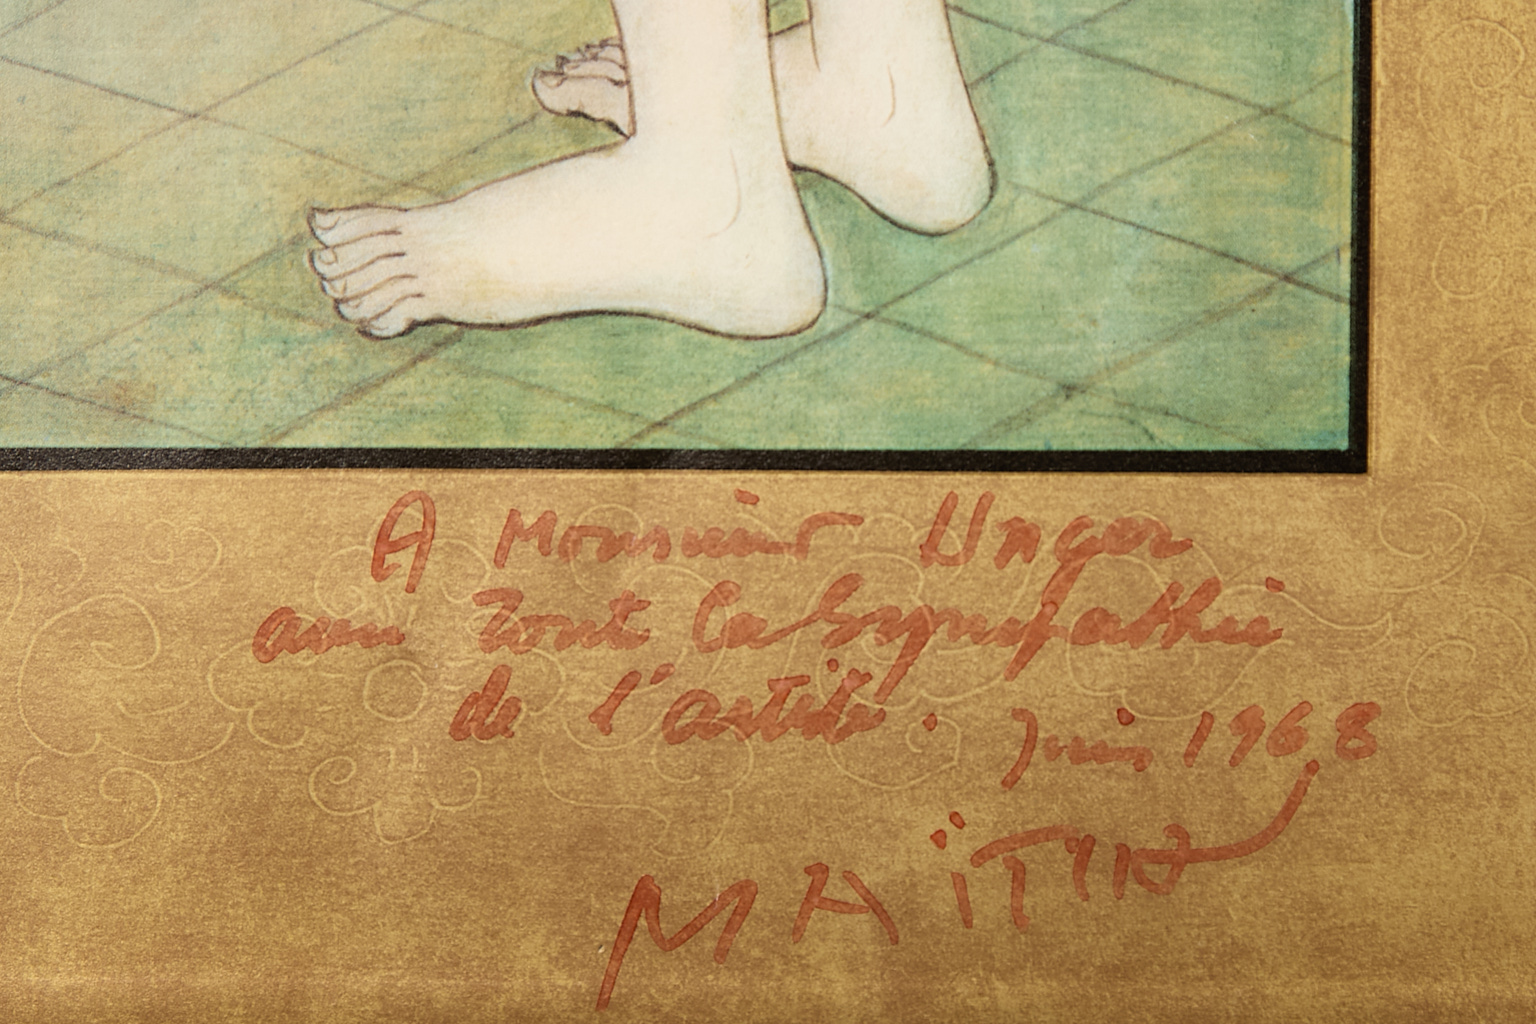 A Monsieur Unger
avec Tout la Sympathie
de l'artiste.
Juin 1968
MAÏTYK